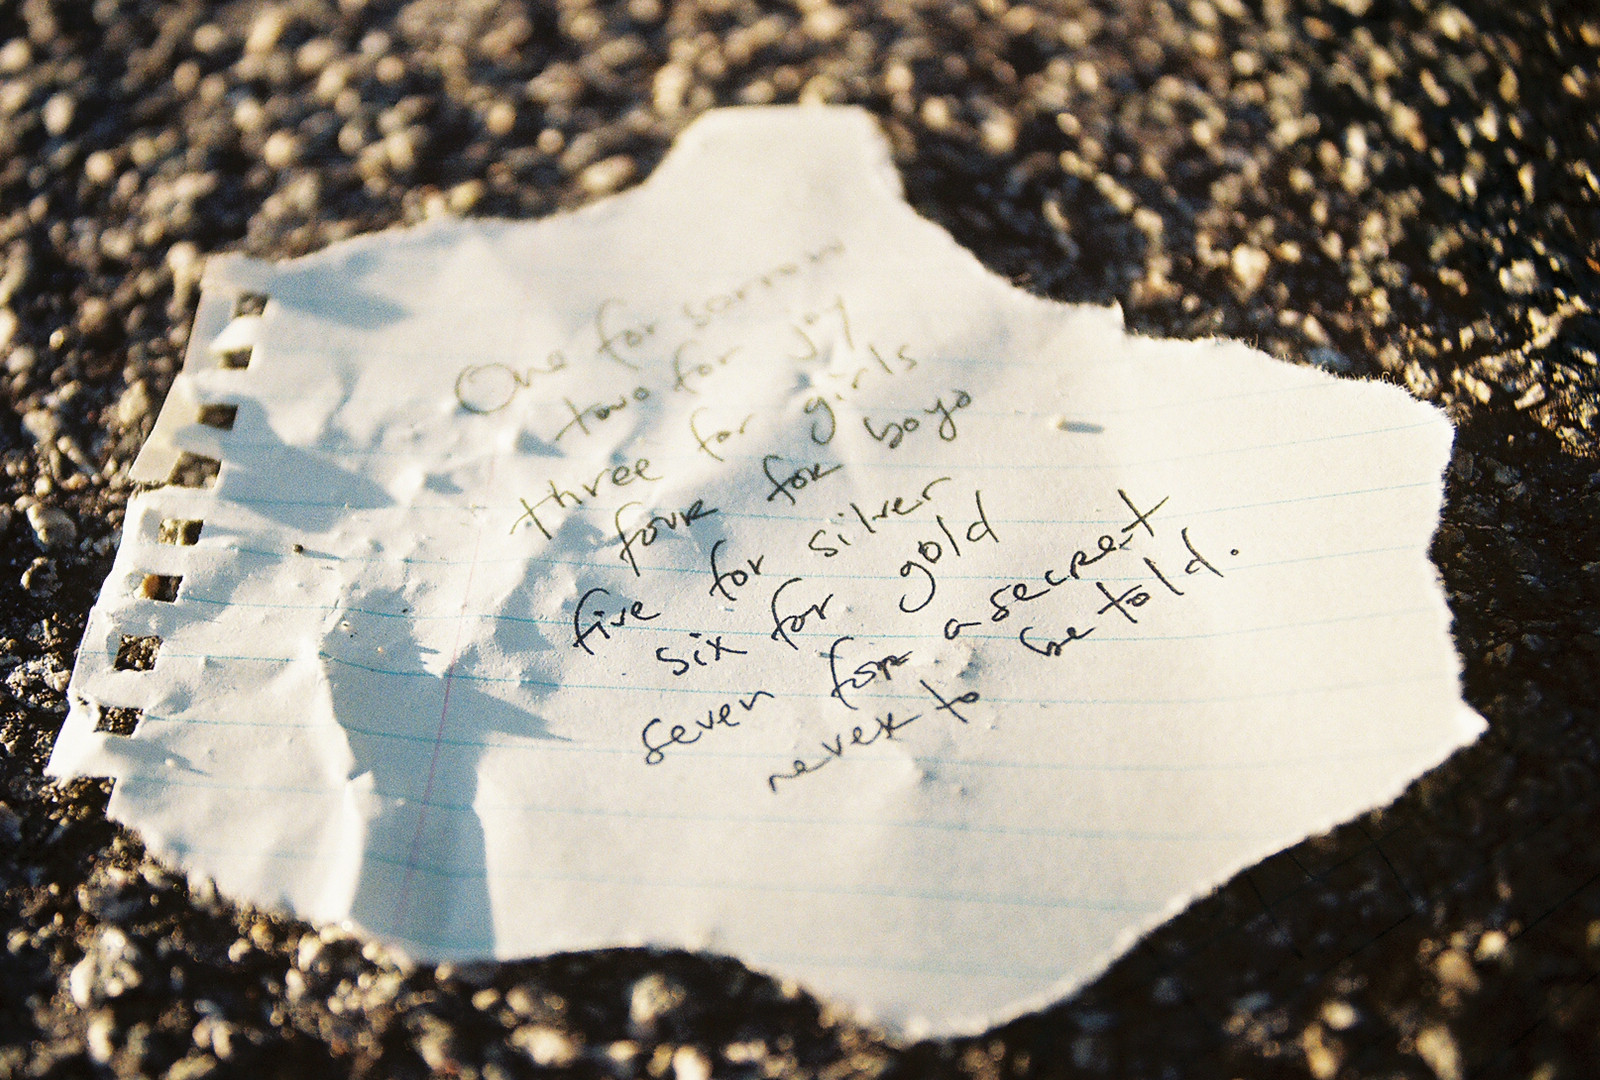 One for sorrow
two for joy
three for girls
four for boys
five for silver
six for gold
seven for a secret
never to be told.